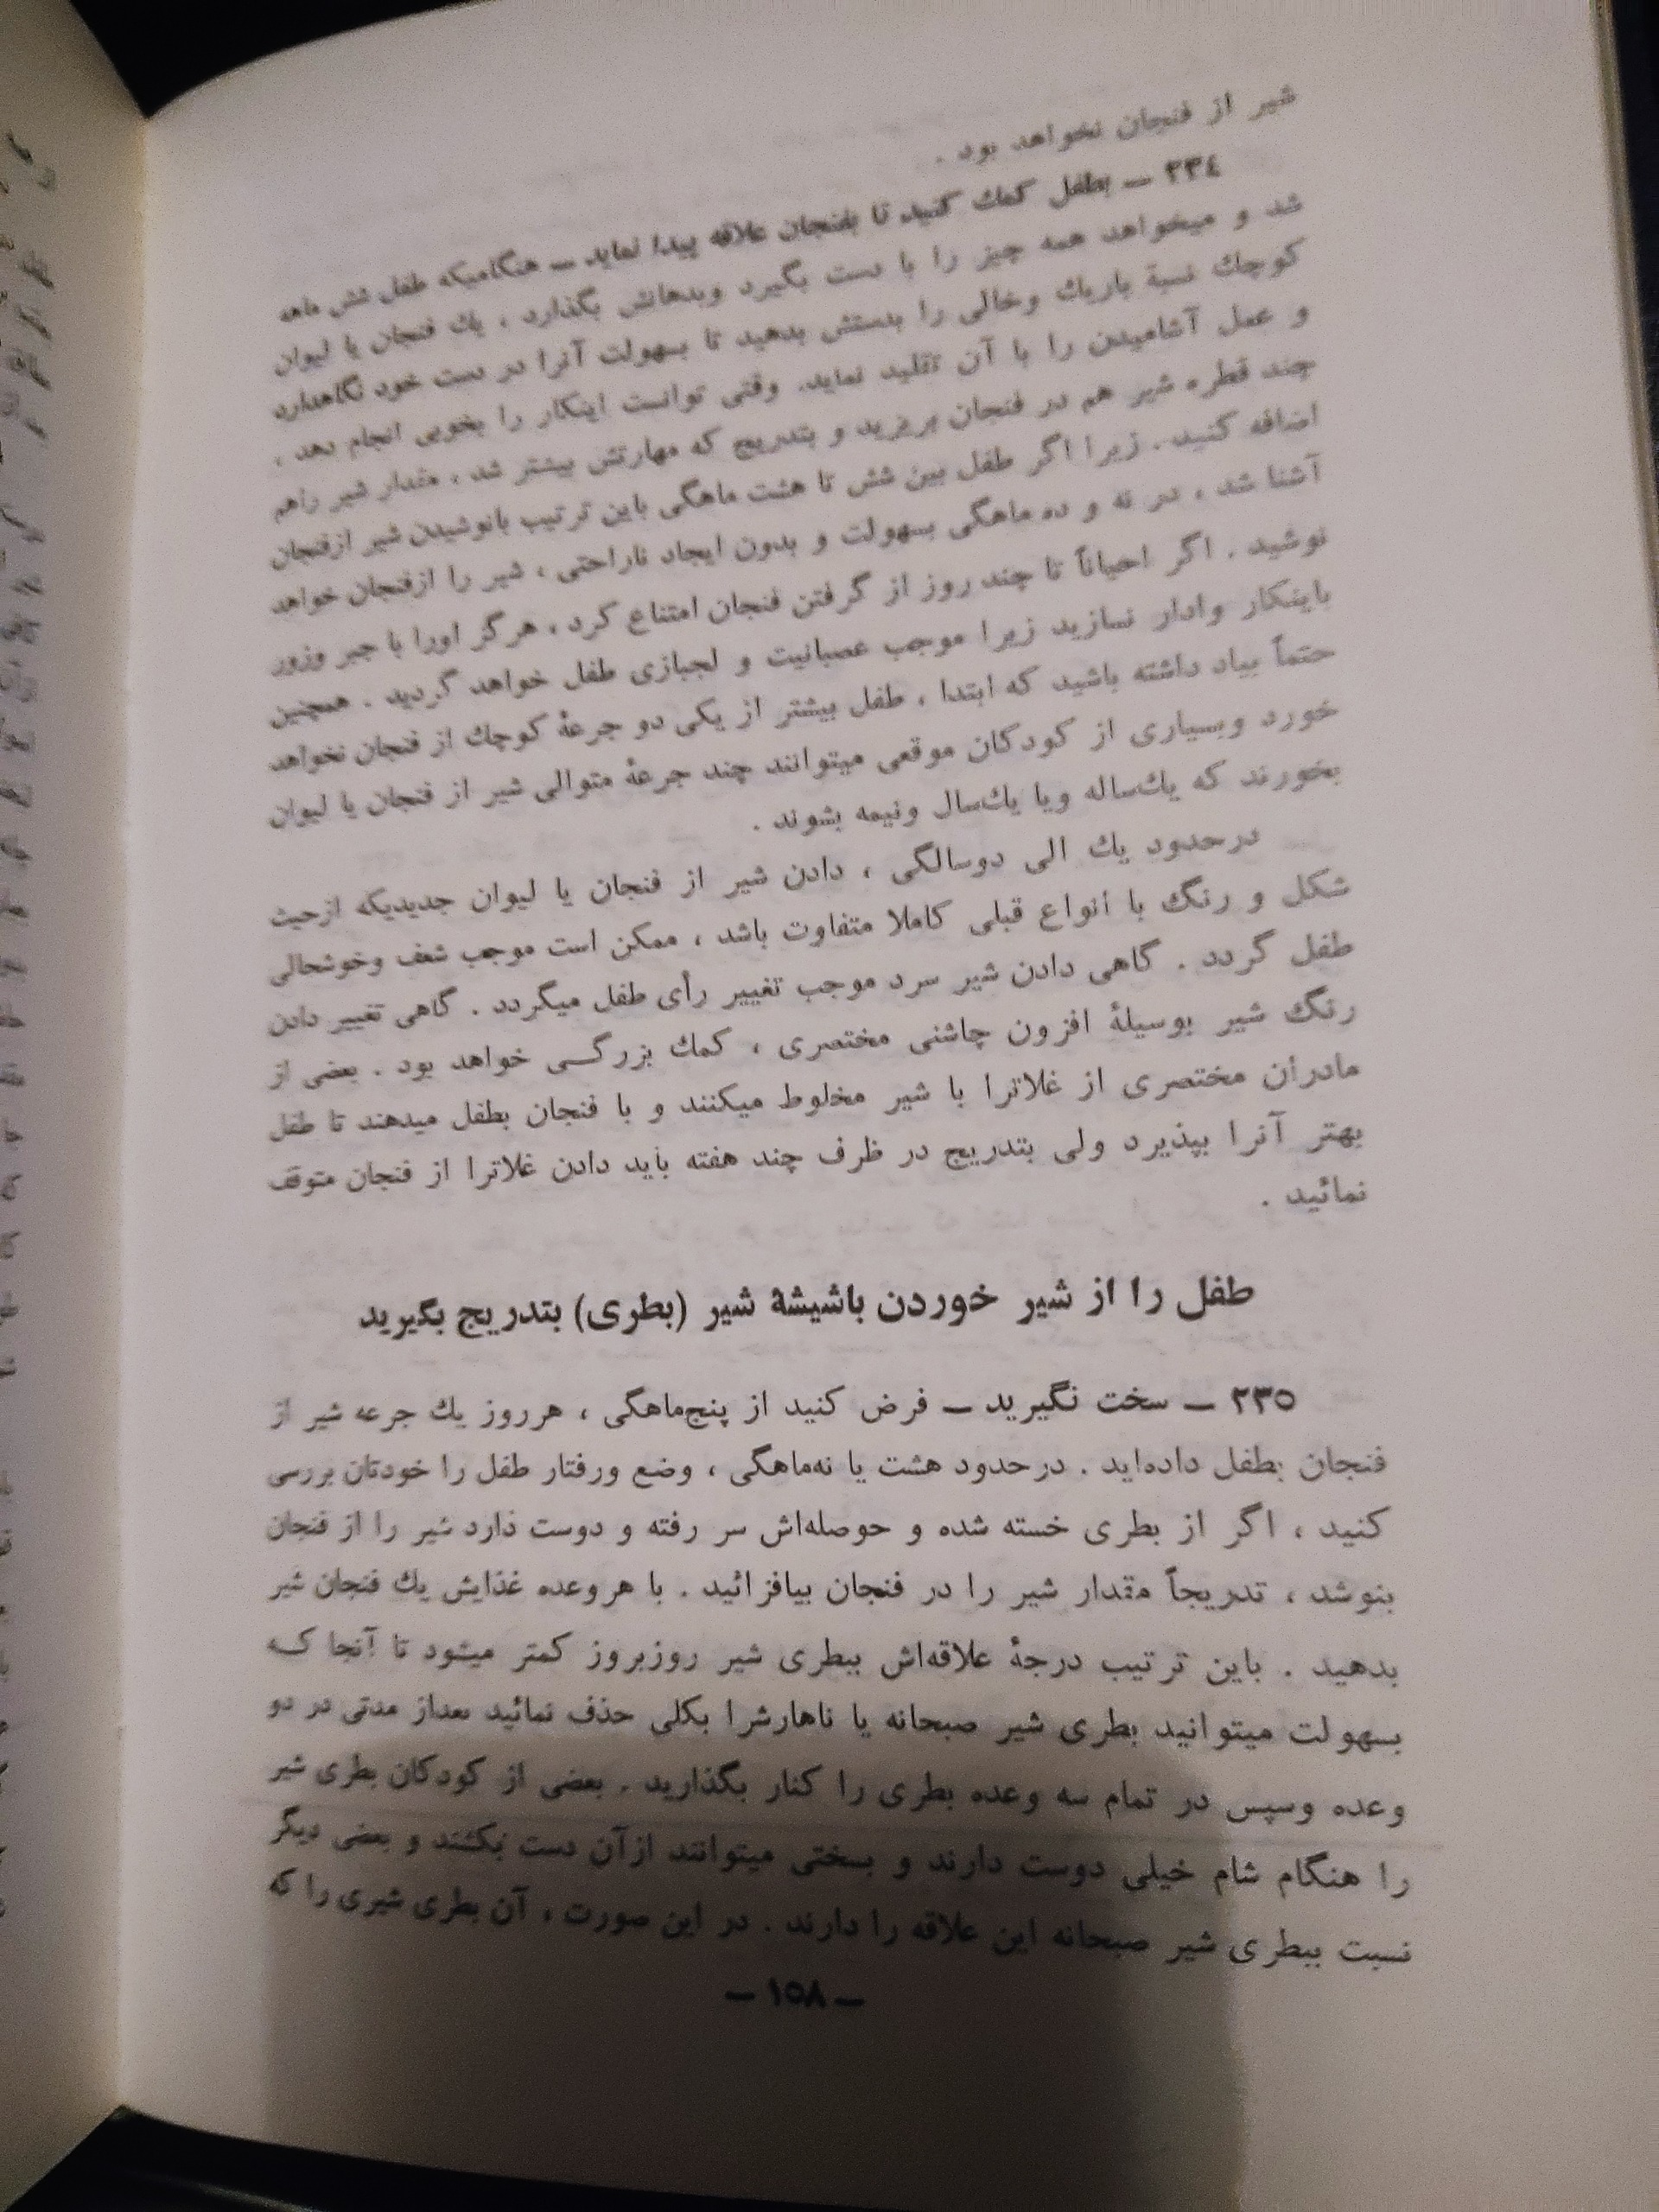 شیر از فنجان نخواهد بود .
۲۳٤ ـ بطفل کمك کنید تا بفنجان علاقه پیدا نماید ـ هنگامیکه طفل شش ماهه
شد و میخواهد همه چیز را با دست بگیرد وبدهانش بگذارد ، یك فنجان یا لیوان
کوچك نسبة باریك وخالی را بدستش بدهید تا بسهولت آنرا در دست خود نگاهدارد
و عمل آشامیدن را با آن تقلید نماید. وقتی توانست اینکار را بخوبی انجام بدهد ،
چند قطره شیر هم در فنجان بریزید و بتدریج که مهارتش بیشتر شد ، مقدار شیر راهم
اضافه کنید . زیرا اگر طفل بین شش تا هشت ماهگی باین ترتیب بانوشیدن شیر ازفنجان
آشنا شد ، در نه و ده ماهگی بسهولت و بدون ایجاد ناراحتی ، شیر را ازفنجان خواهد
نوشید . اگر احیاناً تا چند روز از گرفتن فنجان امتناع کرد ، هرگز اورا با جبر وزور
باینکار وادار نسازید زیرا موجب عصبانیت و لجبازی طفل خواهد گردید . همچنین
حتماً بیاد داشته باشید که ابتدا ، طفل بیشتر از یکی دو جرعهٔ کوچك از فنجان نخواهد
خورد وبسیاری از کودکان موقعی میتوانند چند جرعهٔ متوالی شیر از فنجان یا لیوان
بخورند که یك‌ساله ویا یك‌سال ونیمه بشوند .
درحدود یك الی دوسالگی ، دادن شیر از فنجان یا لیوان جدیدیکه ازحیث
شکل و رنگ با انواع قبلی کاملا متفاوت باشد ، ممکن است موجب شعف وخوشحالی
طفل گردد . گاهی دادن شیر سرد موجب تغییر رأی طفل میگردد . گاهی تغییر دادن
رنگ شیر بوسیلهٔ افزون چاشنی مختصری ، کمك بزرگی خواهد بود . بعضی از
مادران مختصری از غلاترا با شیر مخلوط میکنند و با فنجان بطفل میدهند تا طفل
بهتر آنرا بپذیرد ولی بتدریج در ظرف چند هفته باید دادن غلاترا از فنجان متوقف
نمائید .
طفل را از شیر خوردن باشیشهٔ شیر (بطری) بتدریج بگیرید
۲۳۵ ـ سخت نگیرید ـ فرض کنید از پنج‌ماهگی ، هرروز یك جرعه شیر از
فنجان بطفل داده‌اید . درحدود هشت یا نه‌ماهگی ، وضع ورفتار طفل را خودتان بررسی
کنید ، اگر از بطری خسته شده و حوصله‌اش سر رفته و دوست دارد شیر را از فنجان
بنوشد ، تدریجاً مقدار شیر را در فنجان بیافزائید . با هروعده غذایش یك فنجان شیر
بدهید . باین ترتیب درجهٔ علاقه‌اش ببطری شیر روزبروز کمتر میشود تا آنجا که
بسهولت میتوانید بطری شیر صبحانه یا ناهارشرا بکلی حذف نمائید بعداز مدتی در دو
وعده وسپس در تمام سه وعده بطری را کنار بگذارید . بعضی از کودکان بطری شیر
را هنگام شام خیلی دوست دارند و بسختی میتوانند ازآن دست بکشند و بعضی دیگر
نسبت ببطری شیر صبحانه این علاقه را دارند . در این صورت ، آن بطری شیری را که
ـ ۱۵۸ ـ